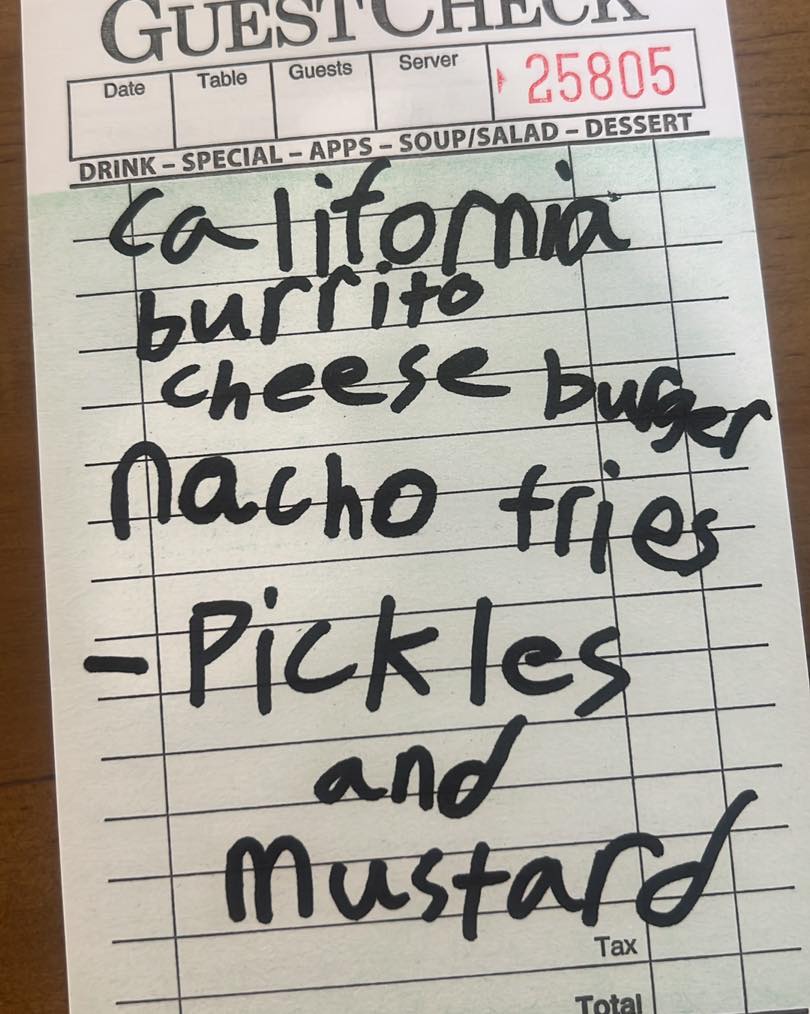 GUEST CHECK
Date Table Guests Server 25805
DRINK – SPECIAL – APPS – SOUP/SALAD – DESSERT
California
burrito
cheese burger
nacho fries
- Pickles
and
mustard
Tax
Total